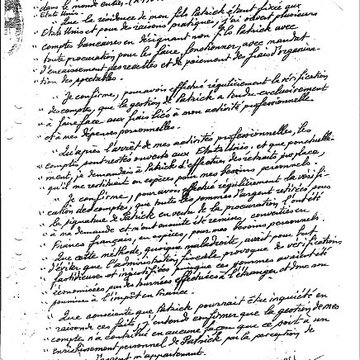 dans le monde entier,
Etats Unis.
" Que la résidence de mon fils Patrick étant fixée aux
Etats Unis et pour des raisons pratiques, j'ai ouvert plusieurs
comptes bancaires en désignant mon fils Patrick avec
toute procuration pour les faire fonctionner, avec mandat
d'encaissement des recettes et de paiement de frais d'organisa-
tion des spectacles.
" Je confirme, pour avoir effectué régulièrement la vérification
des comptes, que la gestion de Patrick a tendu exclusivement
à faire face aux frais liés à mon activité professionnelle
et à mes dépenses personnelles.
" Qu'après l'arrêt de mes activités professionnelles, les
comptes sont restés ouverts aux Etats Unis, et que ponctuelle-
ment, je demandais à Patrick d'effectuer des retraits sur place,
qu'il me restituait en espèces pour mes besoins personnels.
" Je confirme, pour avoir effectué régulièrement la vérifi-
cation des comptes, que toutes les sommes d'argent retirées sous
la signature de Patrick en vertu de la procuration, l'ont été
à ma demande et m'ont ensuite été remises, converties en
Francs français, en espèces, pour mes besoins personnels.
Que cette méthode, quoique maladroite, avait pour but
d'éviter que l'administration fiscale provoque des vérifications
fastidieuses et injustifiées puisque ces sommes avaient été
économisées sur des tournées effectuées à l'étranger et donc non
soumises à l'impôt en France.
" Que consciente que Patrick pourrait être inquiété en
raison de ces faits, j'entends confirmer que la gestion de mes
comptes n'a contribué en aucune façon que ce soit à un
enrichissement personnel de Patrick par la perception de
m'appartenant.